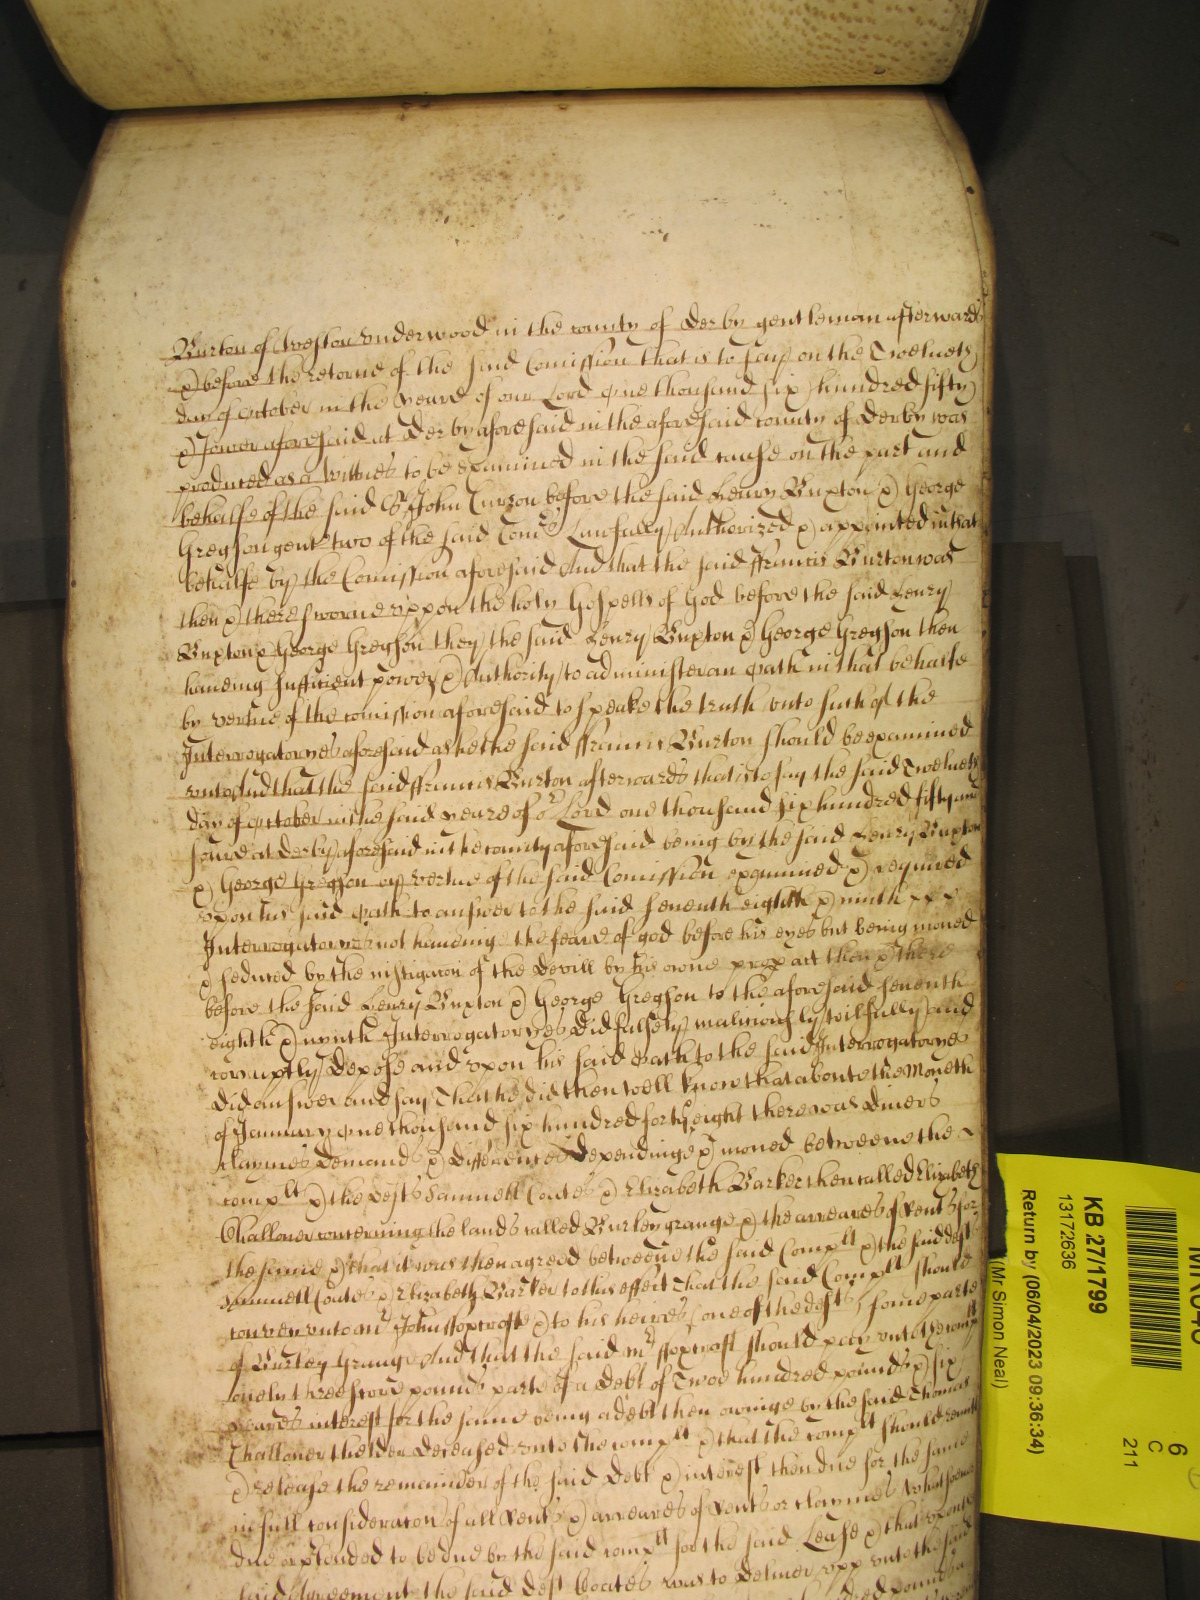 Burton of Weston underwood in the county of Derby gentleman afterwards
& before the retorne of the said Comission that is to say on the Twelueth
day of October in the yeare of our Lord One thousand six hundred fifty
& fower aforesaid at Derby aforesaid in the aforesaid county of Derby was
produced as a wittnes to be examined in the said cause on the part and
behalfe of the said Sr John Curzon before the said Henry Buxton & George
Gregson gent two of the said Comrs Lawfully Authorized & appointed in that
behalfe by the Comission aforesaid And that the said ffrancis Burton was
then & there sworne uppon the holy Gospells of God before the said Henry
Buxton & George Gregson they the said Henry Buxton & George Gregson then
haueing sufficient power & Authority to administer an Oath in that behalfe
by vertue of the comission aforesaid to speake the truth unto such of the
Interrogatoryes aforesaid as he the said ffrancis Burton should be examined
unto And that the said ffrancis Burton afterwards that is to say the said Twelueth
day of October in the said yeare of or Lord one thousand six hundred fifty and
foure at Derby aforesaid in the county aforesaid being by the said Henry Buxton
& George Gregson by vertue of the said Comission examined & required
upon his said Oath to answer to the said seventh eighth & ninth
Interrogatoryes not haueing the feare of god before his eyes but being moued
& seduced by the instigacon of the Devill by his owne proper act then & there
before the said Henry Buxton & George Gregson to the aforesaid seuenth
eighth & nynth Interrogatoryes did falsely maliciously wilfully and
corruptly Depose and upon his said Oath to the said Interrogatorye
did answer and say That he did then well know that aboute the Moneth
of January One thousand six hundred forty eight there was diuers
claymes Demands & differences Dependinge & moued betweene the
complt & the defts Samuell Coates & Elizabeth Barker then called Elizabeth
Challoner concerning the lands called Burley grange & the arreares of Rents for
the same & that it was then agreed betweene the said Complt & the said deft
Samuell Coates & Elizabeth Barker to this effect That the said Complt should
convey unto mr John ffoxcroft & to his heires (one of the defts) some parte
of Burley Grange And that the said mr ffoxcraft should pay unto the complt
onely three score pounds parte of a Debt of Twoe hundred pounds & six
yeares interest for the same being a debt then oweinge by the said Thomas
Challoner thelder deceased unto the complt & that the complt should remitt
& release the remainder of the said Debt & interest then due for the same
in full consideracon of all Rents & arreares of Rents or claymes whatsoeuer
due or ptended to be due by the said complt for the said Lease & that upon the
said Agreement the said deft Coates was to deliuer upp unto the said
KB 27/1799
13172636
Return by (06/04/2023 09:36:34)
(Mr Simon Neal)
6
C
211